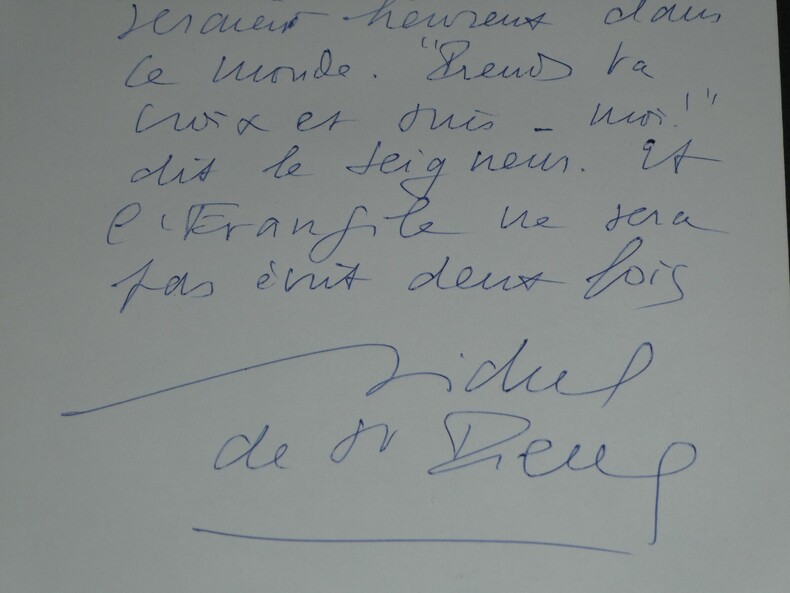 seraient heureux dans
ce monde. "Prends ta
croix et suis-moi!"
dit le Seigneur. Et
l'Evangile ne sera
pas écrit deux fois
Michel
de St Pierre